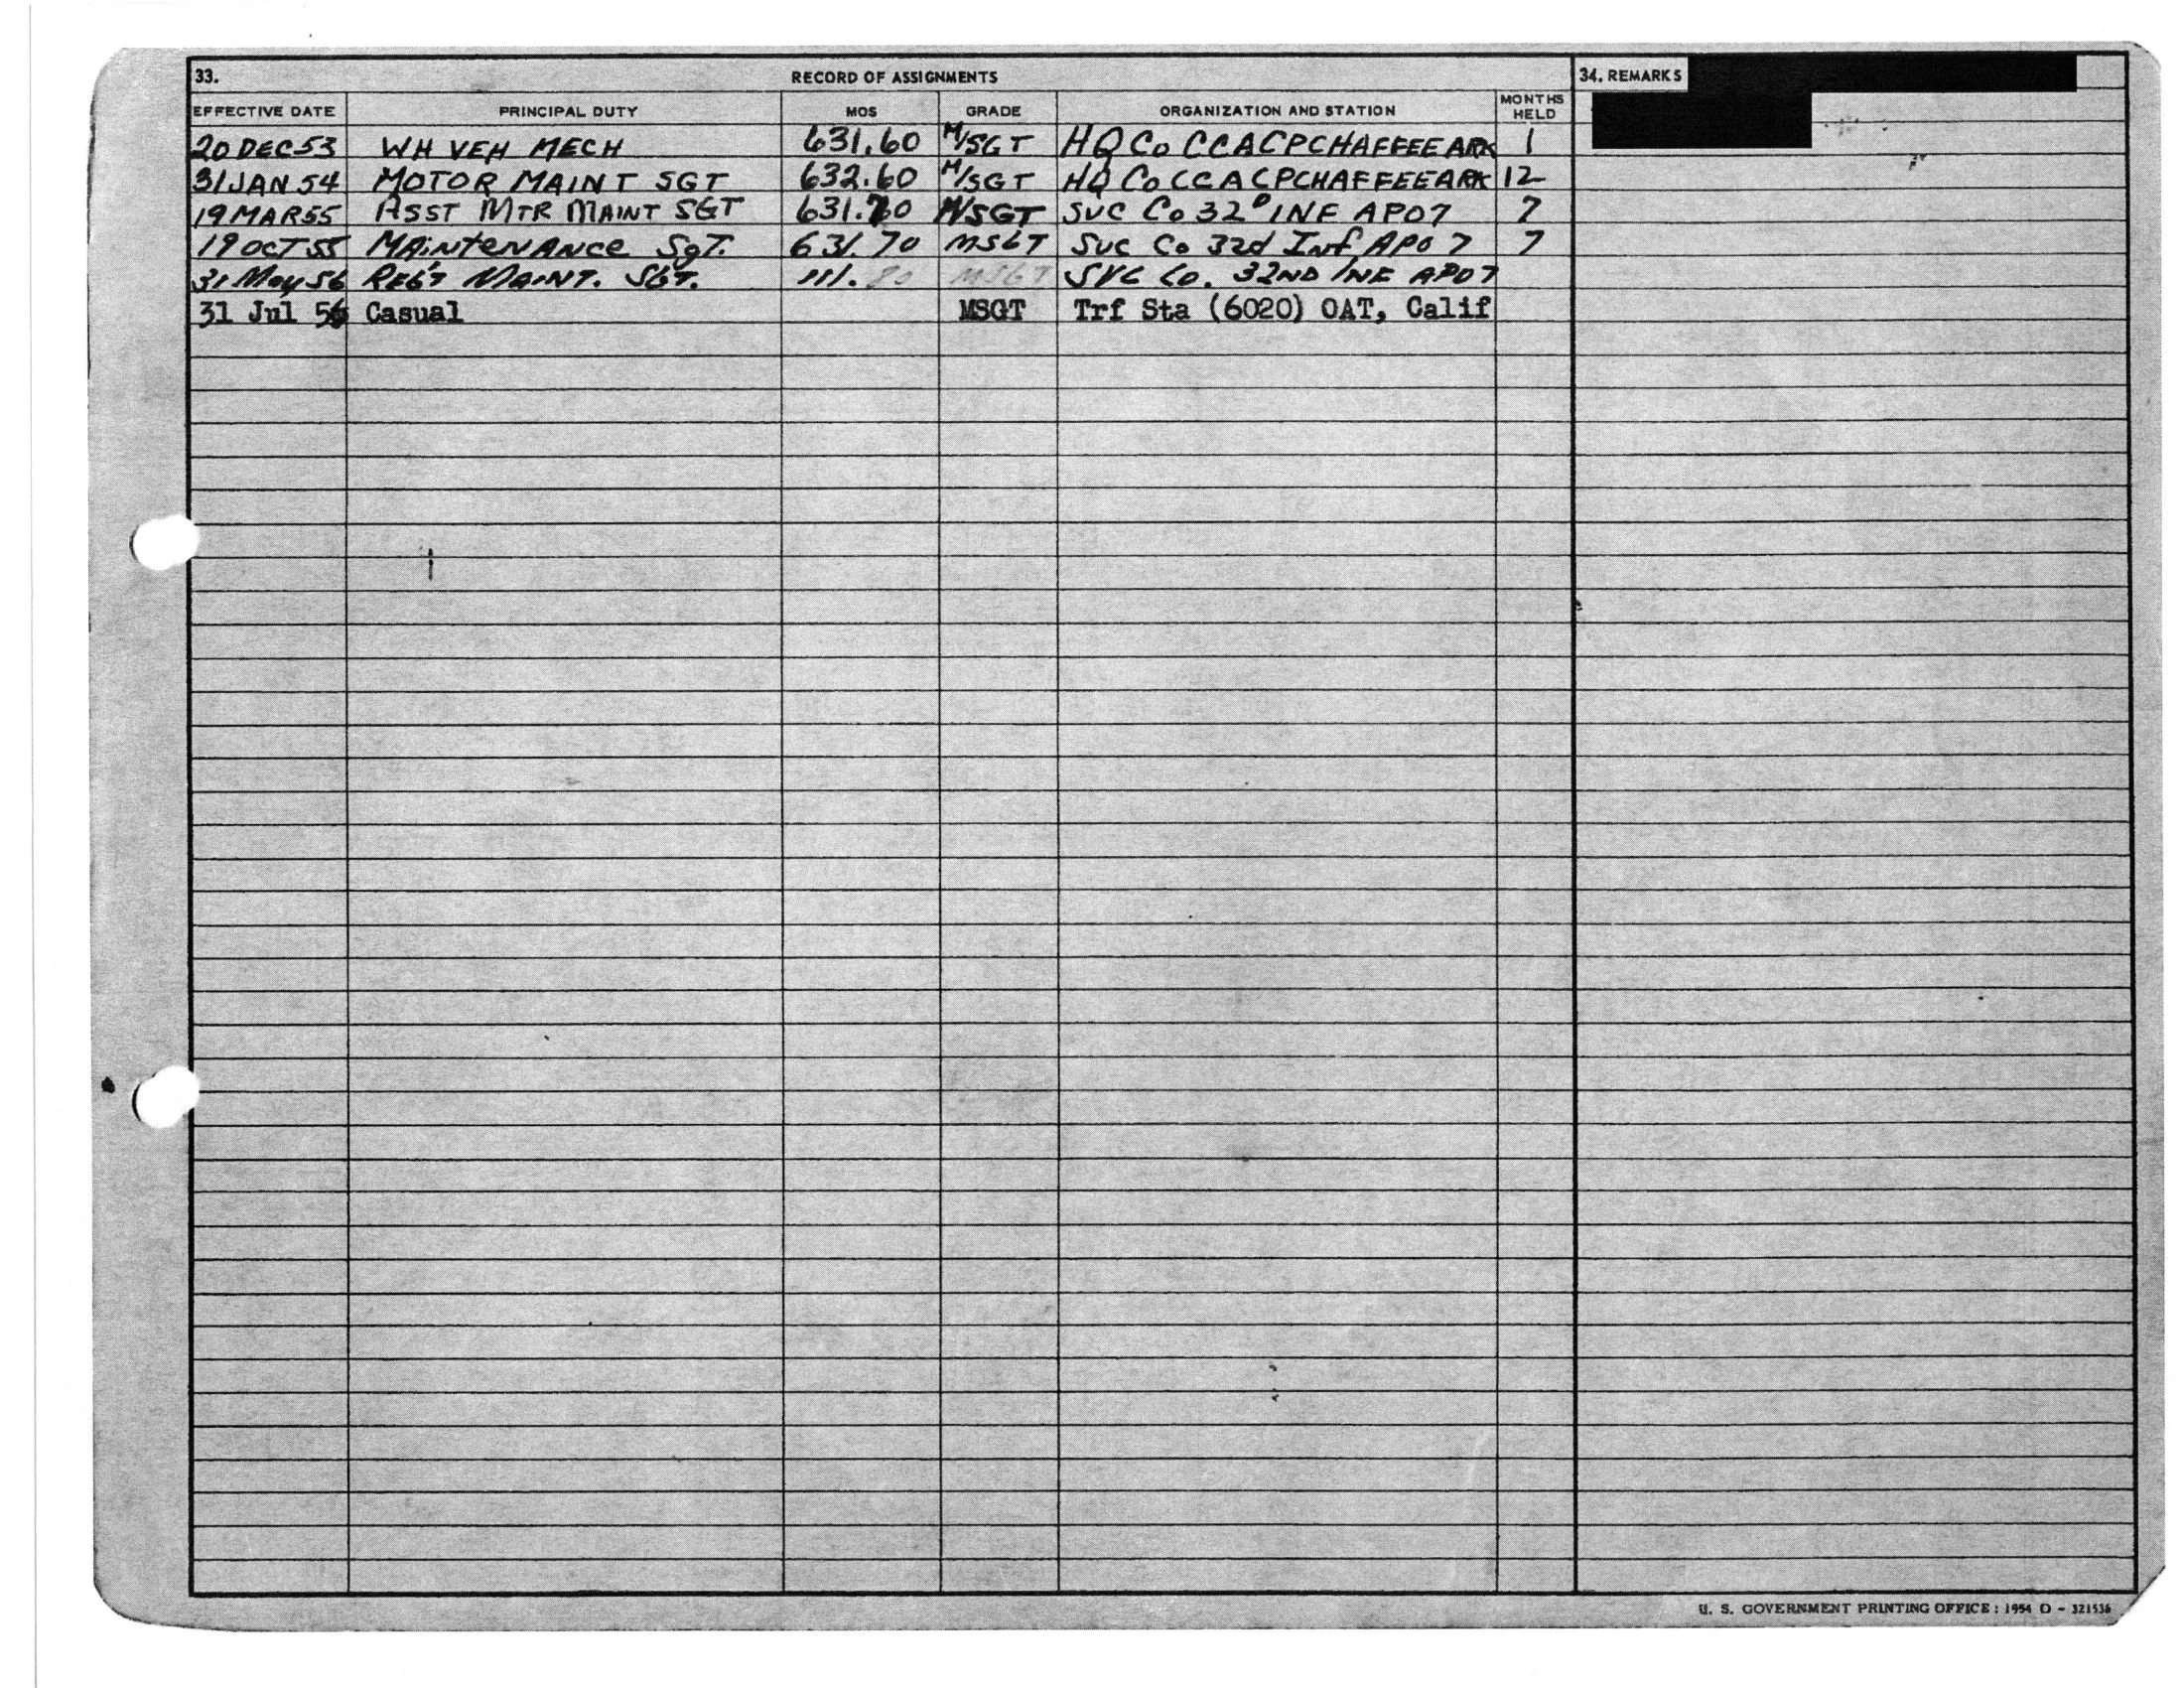 33. RECORD OF ASSIGNMENTS 34. REMARKS
EFFECTIVE DATE PRINCIPAL DUTY MOS GRADE ORGANIZATION AND STATION MONTHS HELD
20 DEC 53 WH VEH MECH 631.60 M/SGT HQ Co CCA CP CHAFFEE ARK 1
31 JAN 54 MOTOR MAINT SGT 632.60 M/SGT HQ Co CCA CP CHAFFEE ARK 12
19 MAR 55 ASST MTR MAINT SGT 631.70 M/SGT SVC Co 32D INF APO 7 7
19 OCT 55 MAINTENANCE SgT. 631.70 MSGT SVC Co 32d Inf APO 7 7
31 May 56 REG'T MAINT. SGT. 111. MSGT SVC Co. 32ND INF APO 7
31 Jul 56 Casual MSGT Trf Sta (6020) OAT, Calif
U. S. GOVERNMENT PRINTING OFFICE : 1954 O - 321536